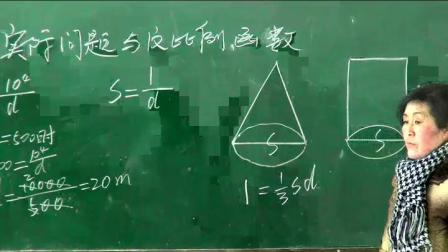 实际问题与反比例函数
10⁴/d
S=1/d
=500时
00=10⁴/d
=10000/500=20m
S
S
1=1/3Sd